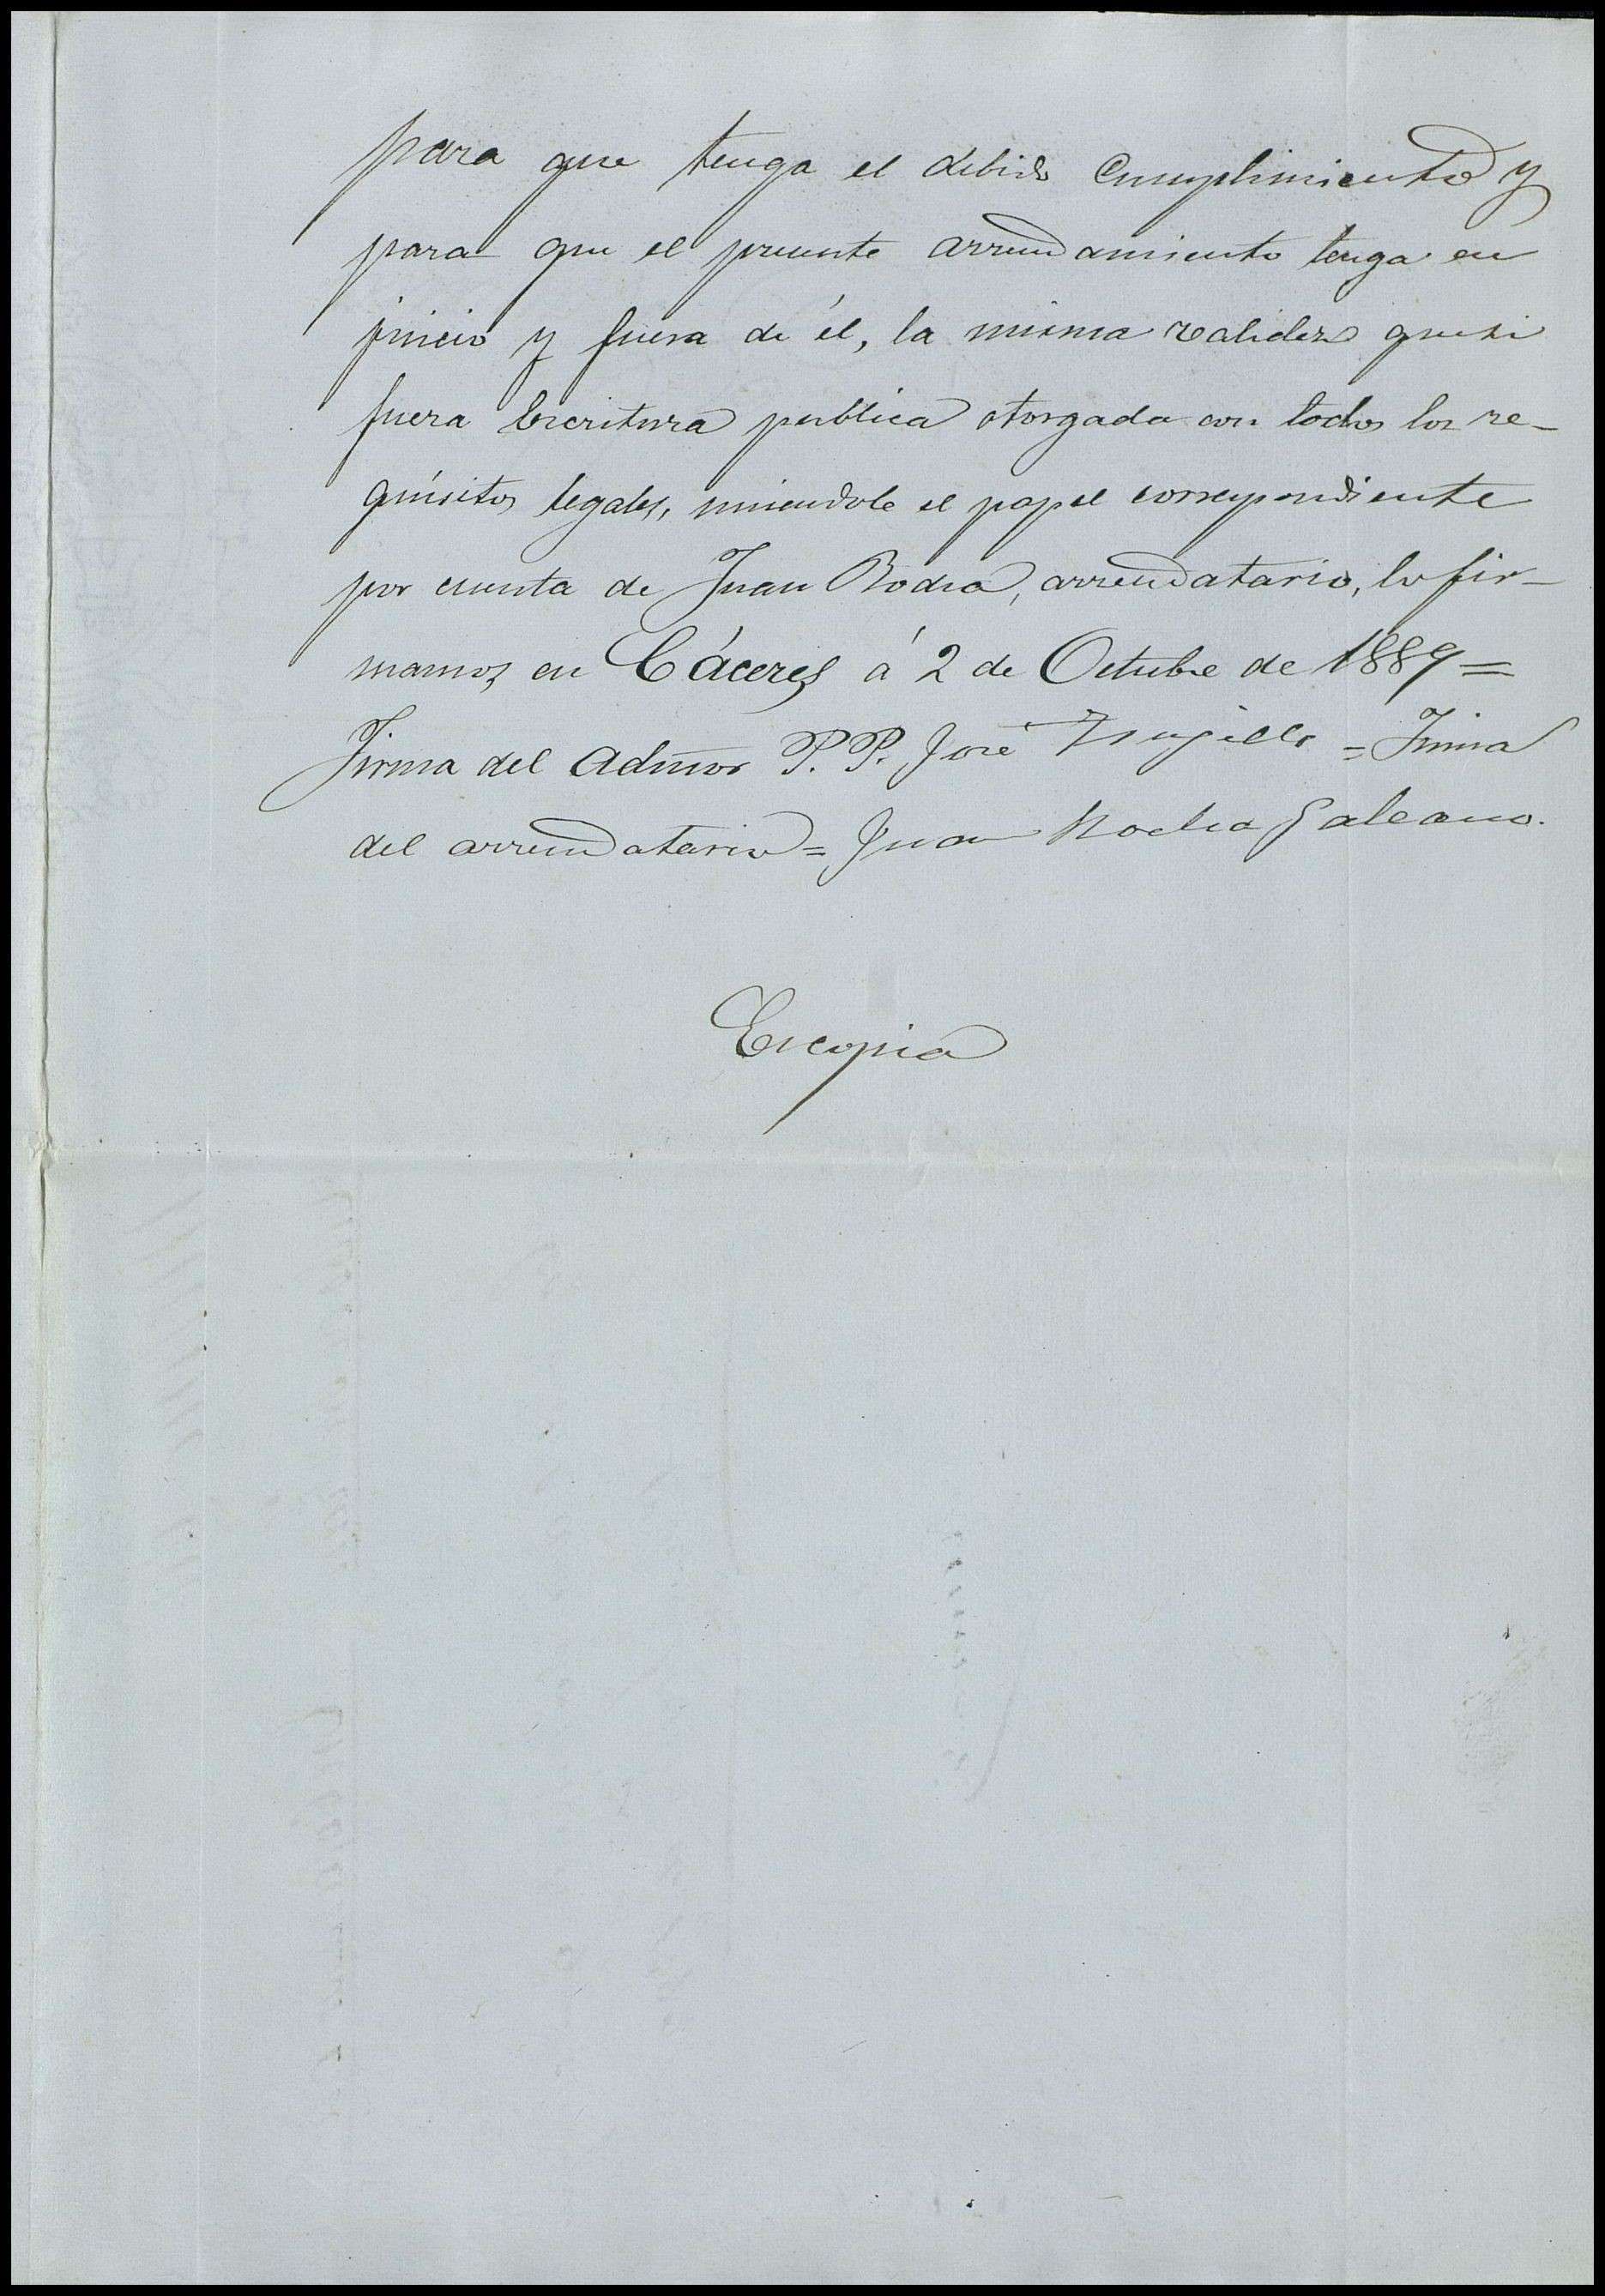 para que tenga el debido Cumplimiento y
para que el presente arrendamiento tenga en
juicio y fuera de él, la misma validez que si
fuera Escritura publica otorgada con todos los re-
quisitos legales, uniendole el papel correspondiente
por cuenta de Juan Rodra, arrendatario, lo fir-
mamos en Cáceres á 2 de Octubre de 1889=
Firma del Admor P.P. José Trujillo = Firma
del arrendatario = Juan Galeano.
Es copia